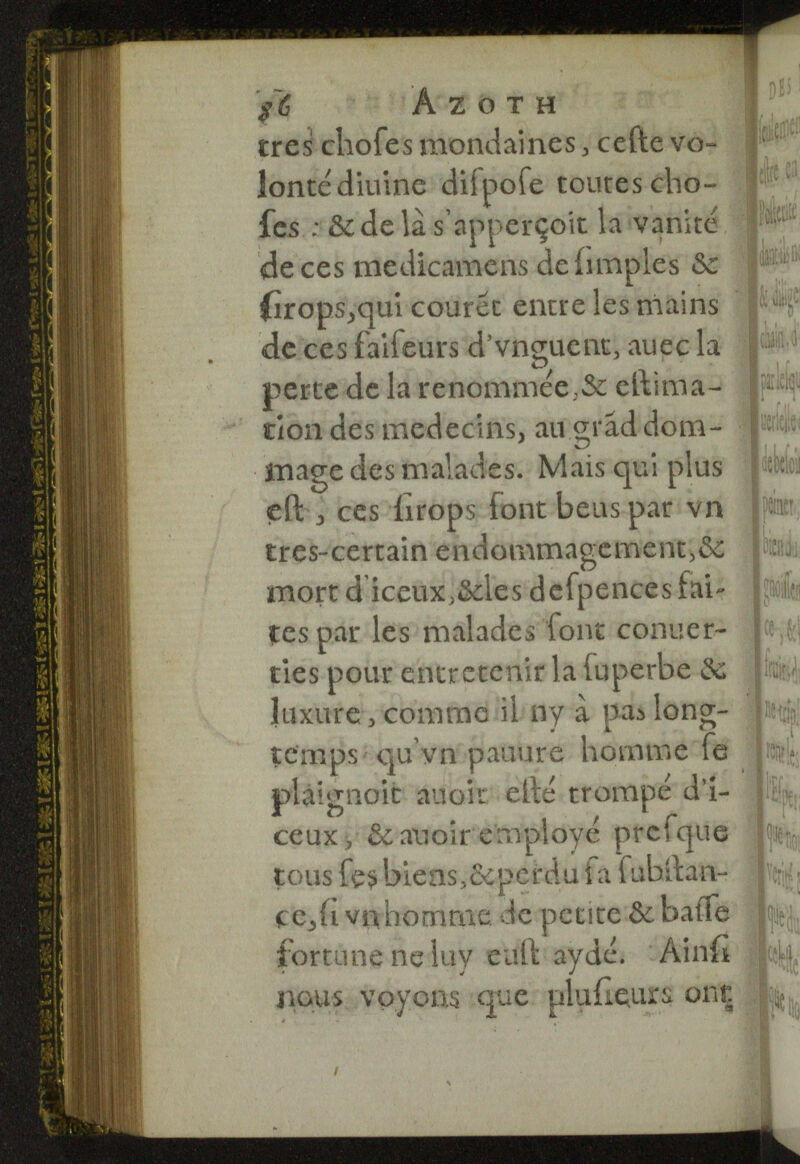 56 AZOTH
tres choſes mondaines, ceſte vo-
lonté diuine diſpoſe toutes cho-
ſes : & de là s'apperçoit la vanité
de ces medicamens de ſimples &
ſirops,qui courẽt entre les mains
de ces faiſeurs d'vnguent, auec la
perte de la renommée,& eſtima-
tion des medecins, au grãd dom-
mage des malades. Mais qui plus
eſt , ces ſirops ſont beus par vn
tres-certain endommagement,&
mort d'iceux,&les deſpences fai-
tes par les malades ſont conuer-
ties pour entretenir la ſuperbe &
luxure, comme il ny à pas long-
temps qu'vn pauure homme ſe
plaignoit auoir eſté trompé d'i-
ceux, & auoir employé preſque
tous ſes biens,&perdu ſa ſubſtan-
ce,ſi vn homme de petite & baſſe
fortune ne luy euſt aydé. Ainſi
nous voyons que pluſieurs ont